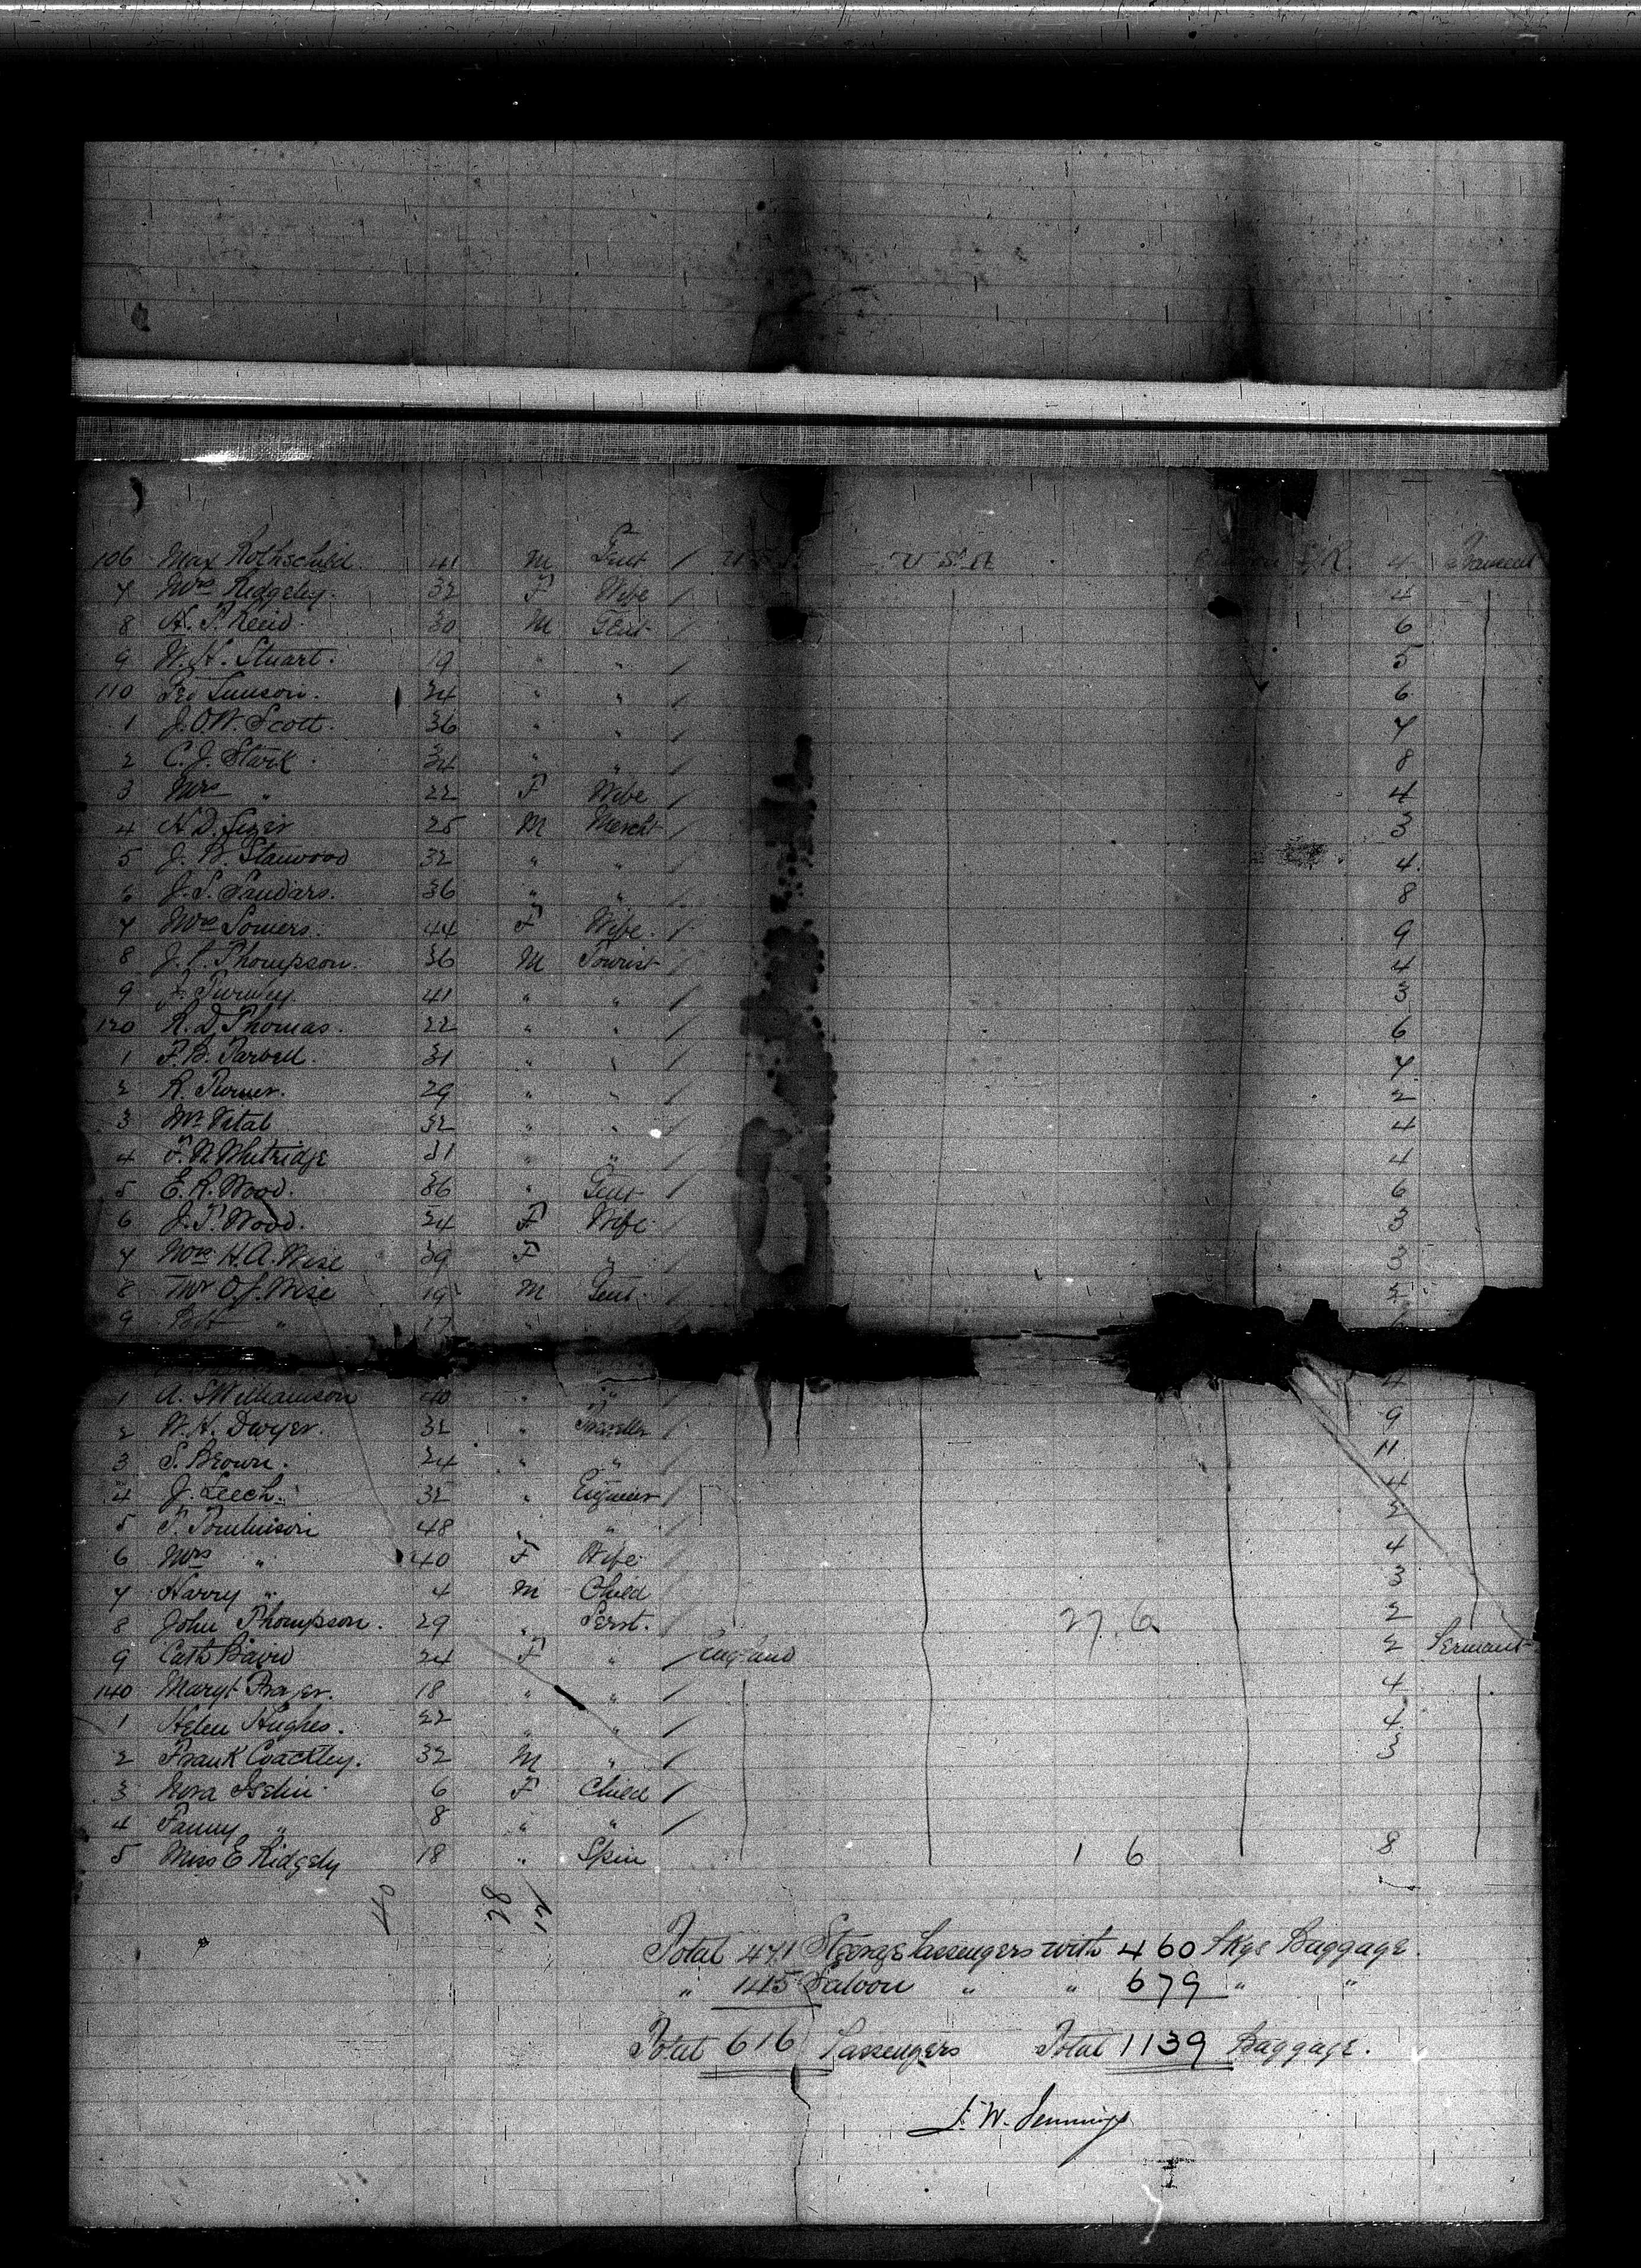 106 Max Rothschild. 41 M Gent / U S A 4 Transient
7 Mrs Ridgeley. 32 F Wife / 4
8 H. T. Reid. 30 M Gent / 6
9 W. H. Stuart. 19 " " / 5
110 Geo 24 " " / 6
1 J. O. W. Scott. 36 " " / 7
2 C. J. Stark. 34 " " / 8
3 Mrs " 22 F Wife / 4
4 H D. 25 M Mercht / 3
5 J. B. Stanwood 32 " " / 4
6 J. S. Sandars. 36 " " / 8
7 Mrs Somers. 44 F Wife. / 9
8 J. P. Thompson. 36 M Tourist / 4
9 J. 41 " " / 3
120 R. D Thomas. 22 " " / 6
1 F. B. Tarbell. 31 " " / 7
2 R. 29 " " / 2
3 Mr Vital 32 " " / 4
4 F. W Whitridge 31 " " / 4
5 E. R. Wood. 36 " Gent / 6
6 J. T. Wood. 24 F Wife / 3
7 Mrs H. A. Wise 39 F " / 3
8 Mr O. J. Wise 19 M Gent. / 2
9 " 17 "
1 A. S Williamson 40 " " / 4
2 W. H. Dwyer. 32 " / 9
3 S. Brown. 24 " " / 11
4 J. Leech. 32 " Engineer / 4
5 T. Tomlinson 48 " " / 2
6 Mrs " 40 F Wife / 4
7 Harry " 4 M Child / 3
8 John Thompson. 29 " Servt. / 27. 6 2
9 Cath Baird 24 F " / England 2 Permant
140 Maryt Frazer. 18 " " / 4
1 Helen Hughes. 22 " " / 4
2 Frank Coackley. 32 M " / 3
3 Nora Iselin 6 F Child /
4 Fanny " 8 " " /
5 Miss E Ridgely 18 " Spin 1 6 8
40 28 12
Total 471 Steerage Passengers with 460 Pkgs Baggage.
" 145 Saloon " " 679 " "
Total 616 Passengers Total 1139 Baggage.
J. W. Jennings